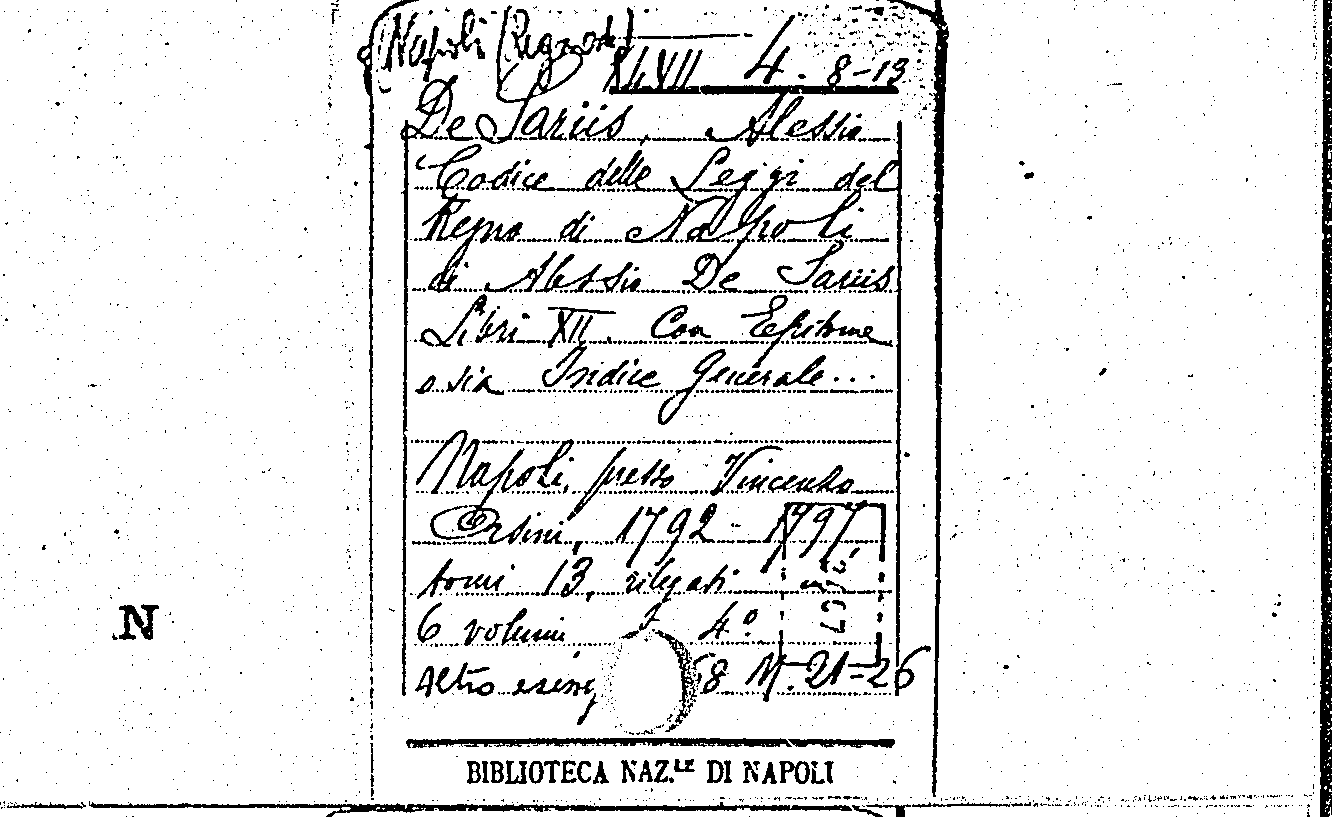 Napoli (Regno di)
XLVII 4. 8-13
De Sariis, Alessio
Codice delle Leggi del
Regno di Napoli
di Alessio De Sariis
Libri XII. Con Epitome
o sia Indice Generale...
Napoli, presso Vincenzo
Orsini, 1792-1797,
tomi 13, rilegati in
6 volumi, 4º
Altro esemp 68 M. 21-26
N
BIBLIOTECA NAZ.LE DI NAPOLI